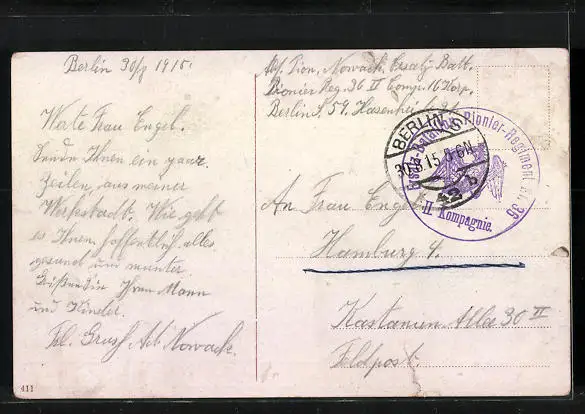 Berlin 30/9 1915.
Werte Frau Engel.
Sende Ihnen ein paar
Zeilen, aus meiner
Werkstadt. Wie geht
es Ihnen hoffentlich alles
gesund und munter.
Grüßen Sie Ihren Mann
und Kinder.
Fdl. Gruß Ad. Nowack.
411
Abs. Pion. Nowack, Ersatz Batl.
Pionier Reg. 36 II Comp. 16 Korp.
Berlin S. 59. Hasenheide
BERLIN S
30.9.15. 5-6N
42 b
Ersatz-Bataillon Pionier-Regiment Nr. 36
II Kompagnie.
An Frau Engel
Hamburg 4.
Kastanien Allee 30 II
Feldpost